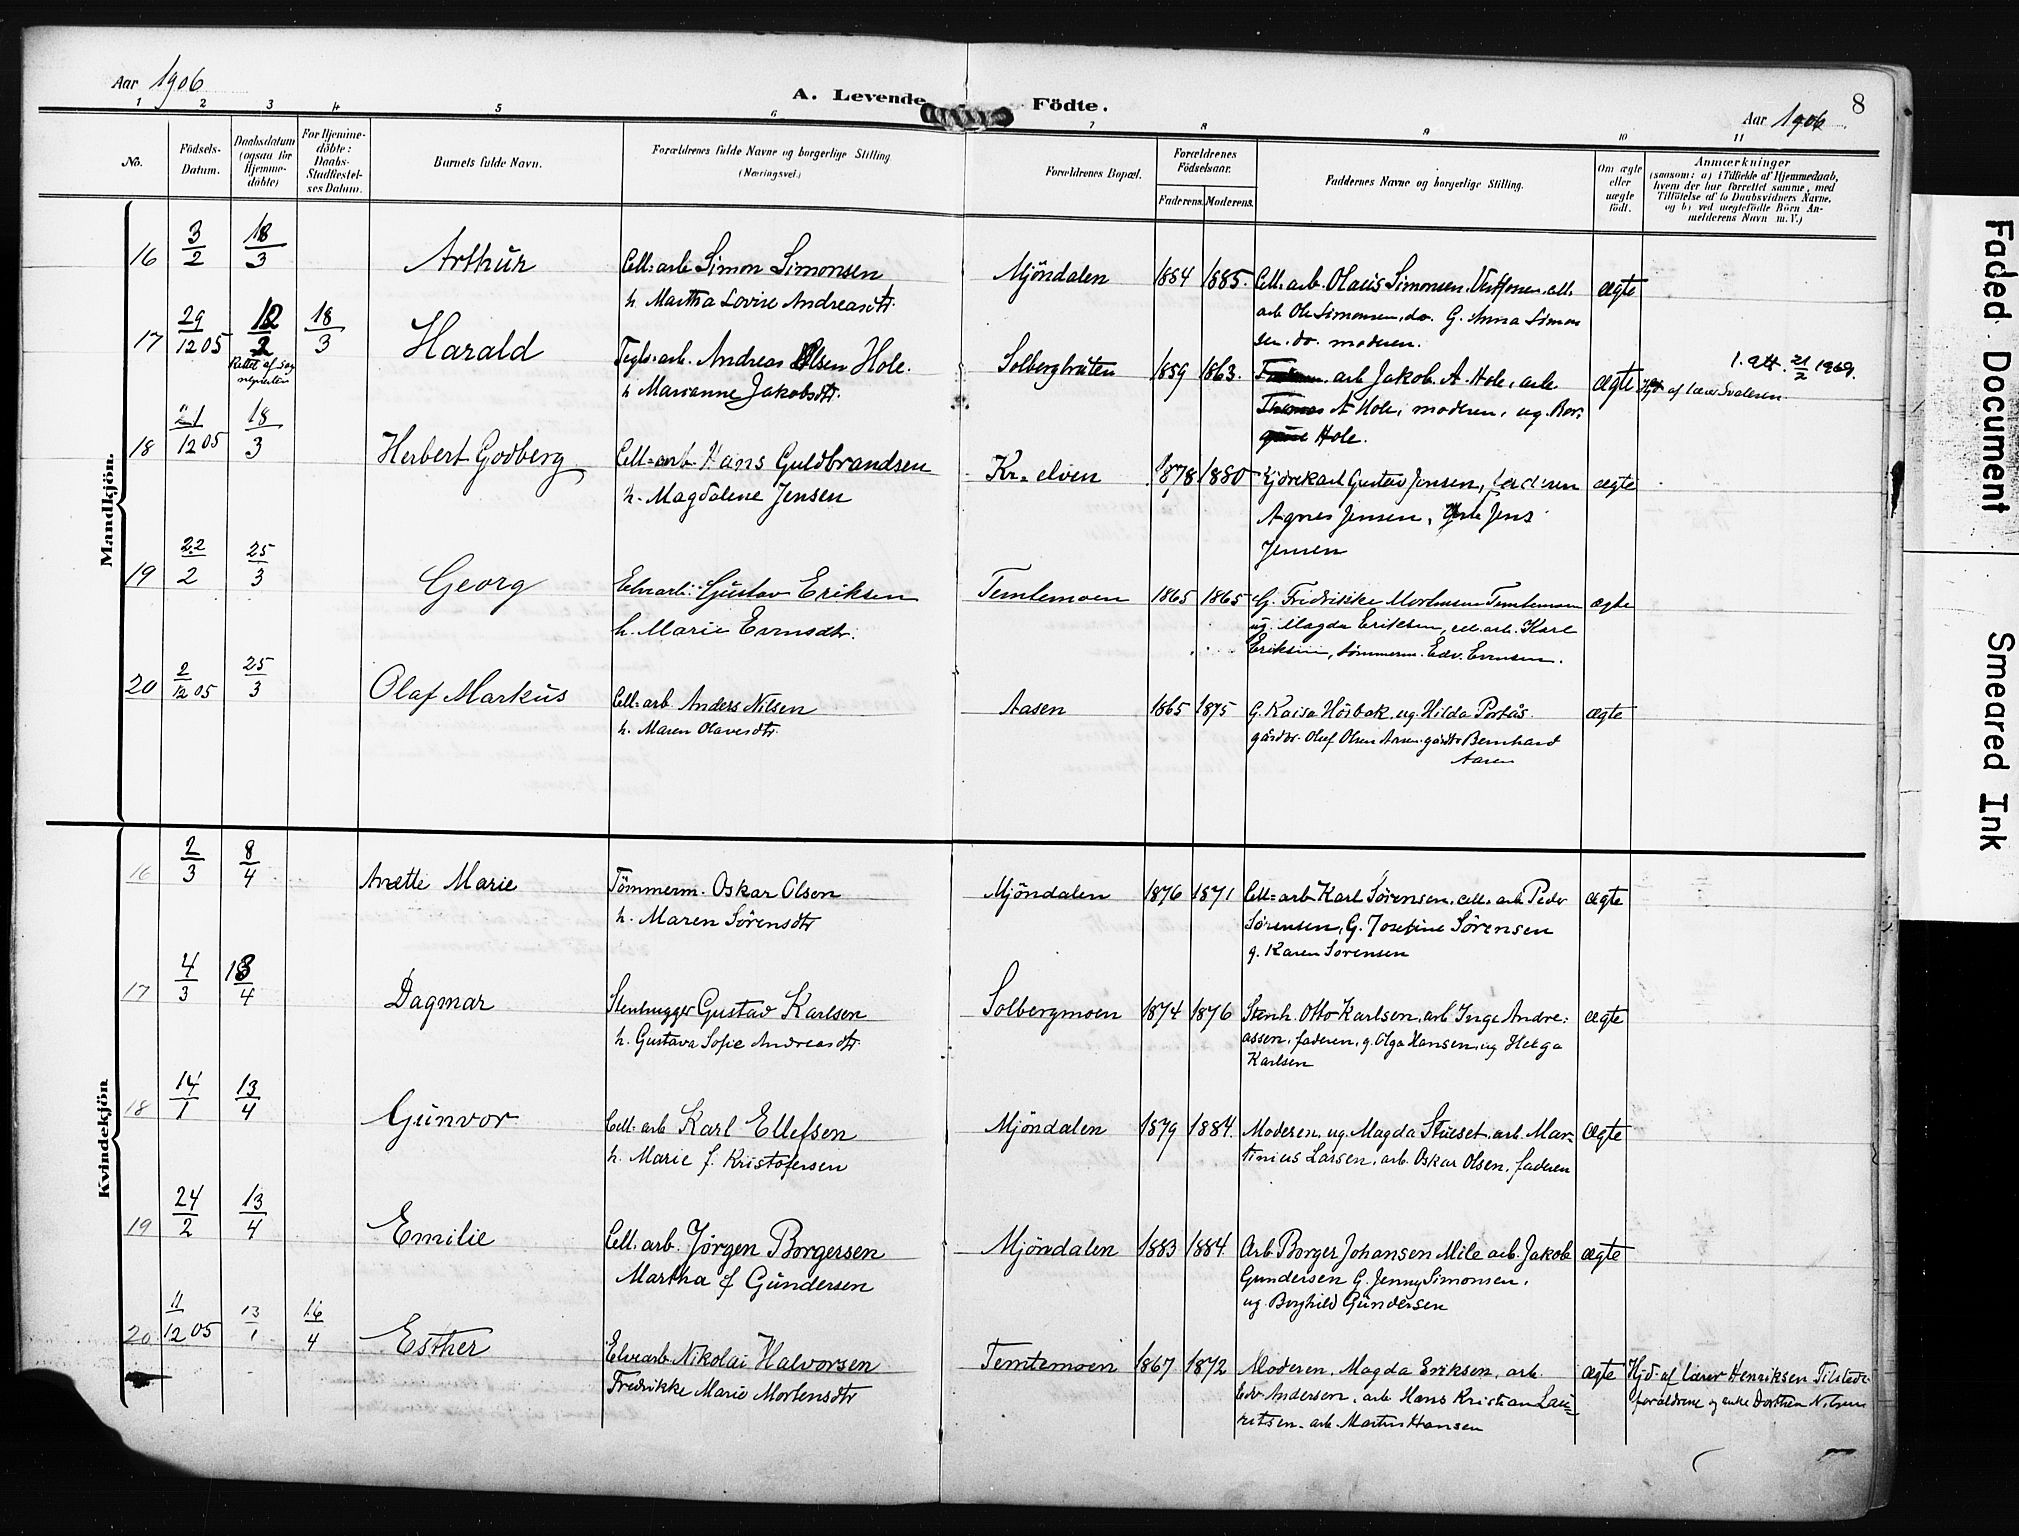 Aar 1906
A. Levende Födte.
8
Aar 1906
1 2 3 4 5 6 7 8 9 10 11
No.
Födsels-
Datum.
Daabsdatum
(ogsaa for
Hjemme-
döbte)
For Hjemme-
döbte:
Daabs-
Stadfæstel-
ses Datum.
Barnets fulde Navn.
Forældrenes fulde Navne og borgerlige Stilling.
(Næringsvei.)
Forældrenes Bopæl.
Forældrenes
Födselsaar.
Faderens. Moderens.
Faddernes Navne og borgerlige Stilling.
Om ægte
eller
uægte
födt.
Anmærkninger
(saasom: a) i Tilfælde af Hjemmedaab,
hvem der har forrettet samme, med
Tilföielse af to Daabsvidners Navne,
og b) ved uægtefödte Börn An-
melderens Navn m. V.)
Mandkjön.
16 3/2 18/3 Arthur Cell.arb. Simon Simonsen Mjöndalen 1884 1885. Cell. arb. Olaus Simonsen, cell. ægte
h. Martha Lovise Andreasdtr. arb Ole Simonsen, do. G. Anna Simon
sen. do. moderen.
17 29/12 05 18/3 Harald Teglv.arb. Andreas Olsen Hole. Solbergbråten 1859 1863. arb Jakob A. Hole, arb ægte 1. att. 21/2 1969.
Rettet af sog
nepresten
h. Marianne Jakobsdtr. Thomas A Hole, moderen, ug. Bor-
Hjd af lærer Svalesen
gine Hole.
18 21/12 05 18/3 Herbert Godberg Cell=arb. Hans Guldbrandsen Kr. elven 1878 1880 Kjörekarl Gustav Jensen, faderen ægte
h. Magdalene Jensen Agnes Jensen, Jens
Jensen
19 22/2 25/3 Georg Elvearb. Gustav Eriksen Temtemoen 1865 1865 G. Fredrikke Mortensen Temtemoen ægte
h. Marie Evensdtr. ug. Magda Eriksen, cell. arb. Karl
Eriksen, tømmerm. Edv. Evensen.
20 2/12 05 25/3 Olaf Markus Cell. arb. Anders Nilsen Aasen 1865 1875 G. Kaisa Hörbak, ug. Hilda Portås. ægte
h. Maren Olavesdtr. gårdbr. Oluf Olsen Aasen. Bernhard
Aasen
Kvindekjön
16 2/3 8/4 Anette Marie Tömmerm. Oskar Olsen Mjöndalen 1876 1871 Cell=arb Karl Sørensen, cell. arb Peder ægte
h. Maren Sørensdtr Sørensen, G. Josefine Sørensen
g. Karen Sørensen
17 4/3 18/4 Dagmar Stenhugger Gustav Karlsen Solbergmoen 1874 1876 Stenh. Otto Karlsen, arb Inge Andre= ægte
h. Gustava Sofie Andreasdtr. assen, faderen, g. Olga Hansen, ug Helga
Karlsen
18 14/1 13/4 Gunvor Cell. arb Karl Ellefsen Mjöndalen 1879 1884. Moderen, ug. Magda Stueset, arb. Mar- Ægte
h. Marie f. Kristofersen tinius Larsen, arb. Oskar Olsen, faderen
19 24/2 13/4 Emilie Cell. arb. Jörgen Borgersen Mjöndalen 1883 1884 Arb Borger Johansen Mile arb. Jakob ægte
Martha f Gundersen Gundersen G. Jenny Simonsen,
ug. Borghild Gundersen
20 11/12 05 13/1 16/4 Esther Elvearb Nikolai Halvorsen Temtemoen 1867 1872 Moderen, Magda Eriksen, arb. ægte Hjd. af lærer Henriksen Tilstede
Fredrikke Marie Mortensdtr Edv. Andersen, arb Hans Kristian Lau= forældrene og enke Dorthea Nilsen
ritsen, arb. Martin Hansen
Faded Document
Smeared Ink